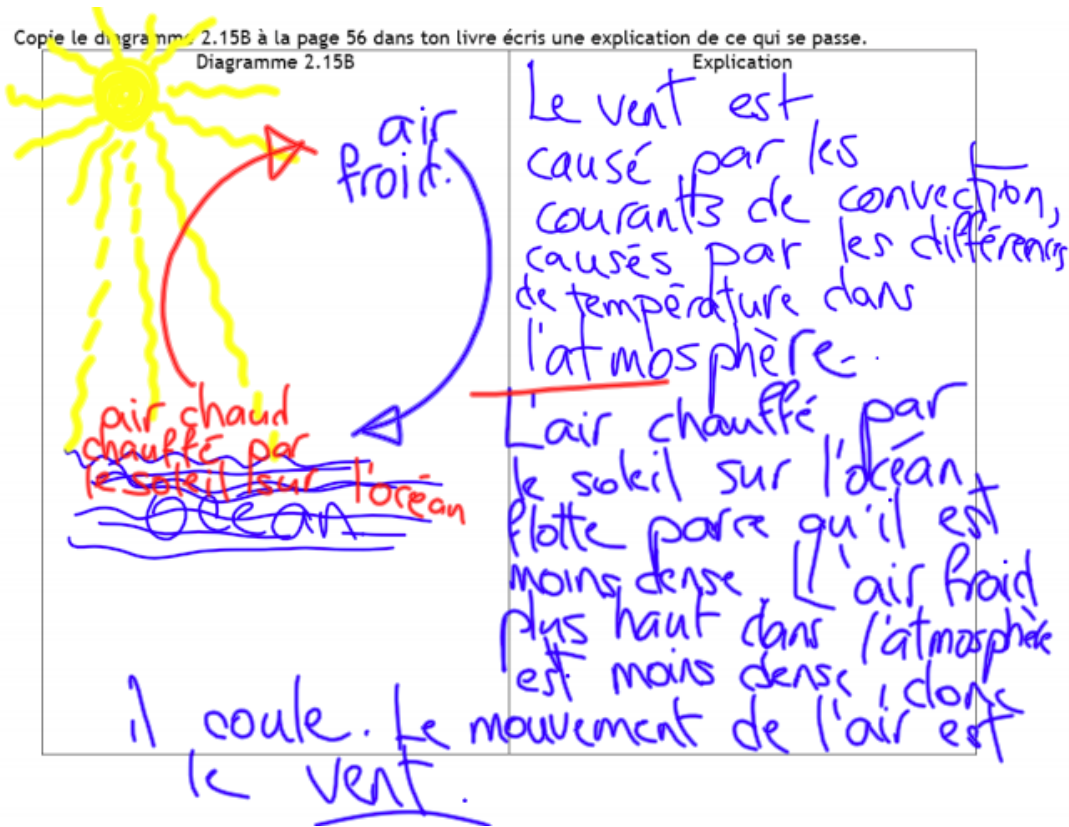 Copie le diagramme 2.15B à la page 56 dans ton livre écris une explication de ce qui se passe.
Diagramme 2.15B
air
froid.
air chaud
chauffé par
le soleil sur l'océan
océan
Explication
Le vent est
causé par les
courants de convection,
causés par les différences
de température dans
l'atmosphère.
L'air chauffé par
le soleil sur l'océan
flotte parce qu'il est
moins dense. L'air froid
plus haut dans l'atmosphère
est moins dense, donc
il coule. Le mouvement de l'air est
le vent.